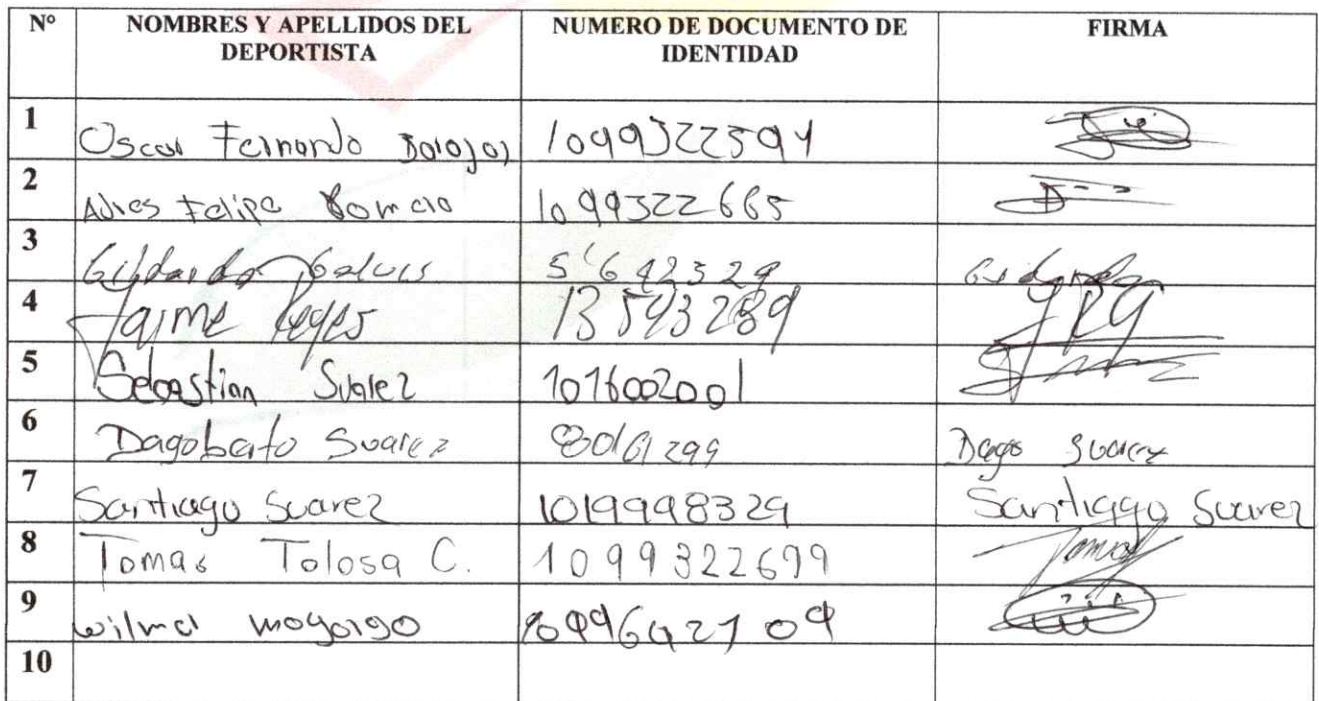 N° NOMBRES Y APELLIDOS DEL DEPORTISTA NUMERO DE DOCUMENTO DE IDENTIDAD FIRMA
1 Oscar Fernando 1099322594
2 Felipe Romero 1099322665
3 Gildardo Galvis 5'642329
4 Jaime Reyes 13593289
5 Sebastian Suarez 1016002001
6 Dagoberto Suarez 80161299 Dago Suarez
7 Santiago Suarez 1019998329 Santiago Suarez
8 Tomas Tolosa C. 1099322699 Tomas
9 wilmer mogorgo
10